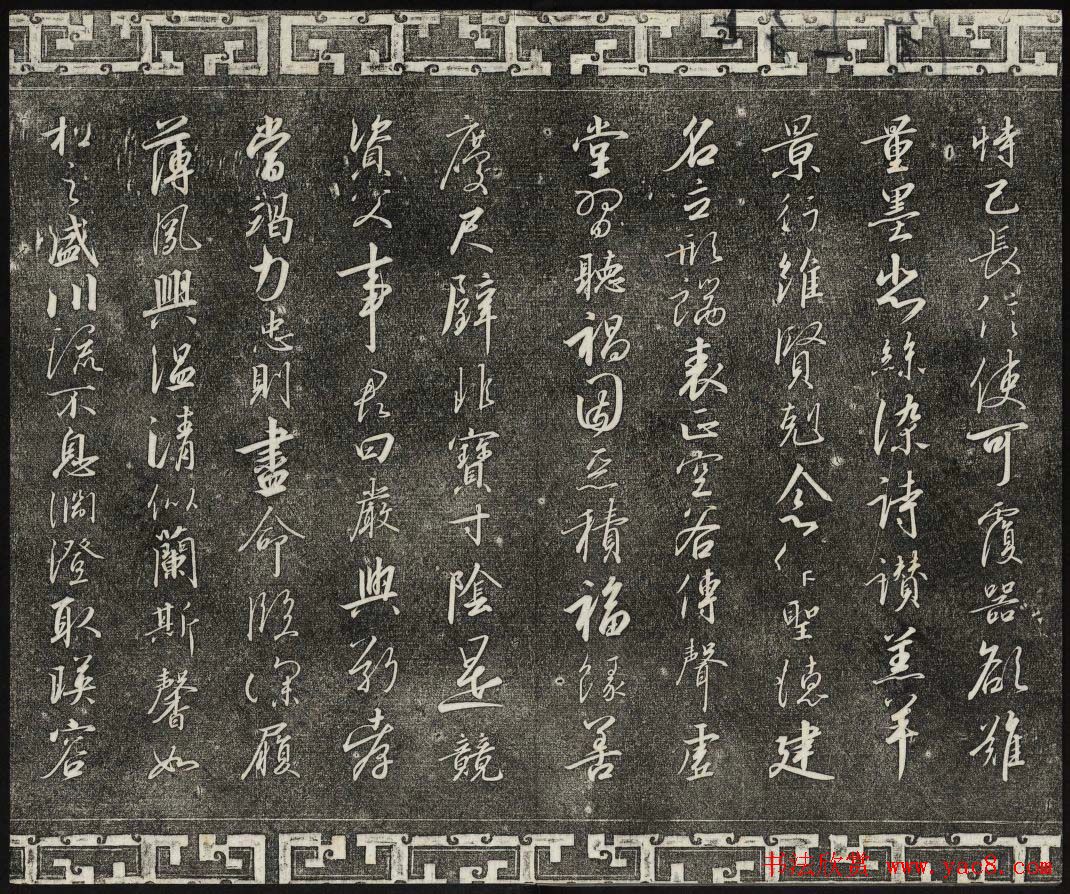 恃己長信使可覆器欲難
量墨悲絲染詩讃羔羊
景行維賢剋念作聖德建
名立形端表正空谷傳聲虛
堂習聽禍因惡積福緣善
慶尺璧非寶寸陰是競
資父事君曰嚴與敬孝
當竭力忠則盡命臨深履
薄夙興溫清似蘭斯馨如
松之盛川流不息淵澄取暎容
书法欣赏 www.yac8.com